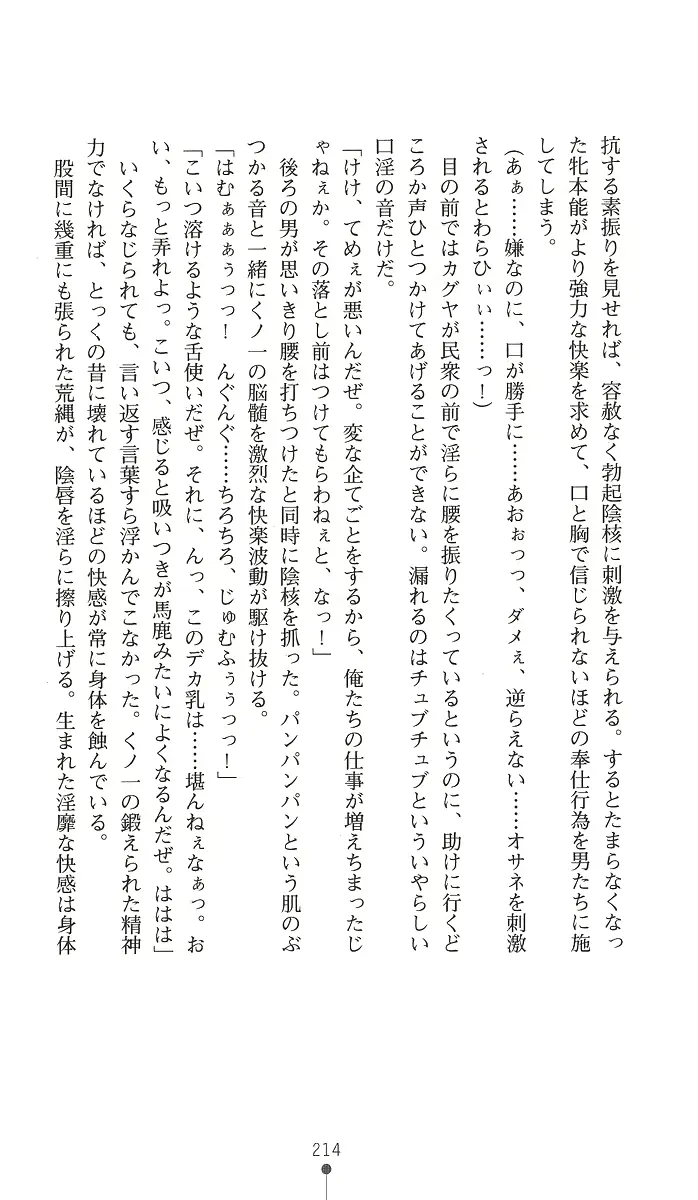 抗する素振りを見せれば、容赦なく勃起陰核に刺激を与えられる。するとたまらなくなっ
た牝本能がより強力な快楽を求めて、口と胸で信じられないほどの奉仕行為を男たちに施
してしまう。
(あぁ……嫌なのに、口が勝手に……あおぉっっ、ダメぇ、逆らえない……オサネを刺激
されるとわらひぃぃ……っ!)
目の前ではカグヤが民衆の前で淫らに腰を振りたくっているというのに、助けに行くど
ころか声ひとつかけてあげることができない。漏れるのはチュブチュブといういやらしい
口淫の音だけだ。
「けけ、てめぇが悪いんだぜ。変な企てごとをするから、俺たちの仕事が増えちまったじ
ゃねぇか。その落とし前はつけてもらわねぇと、なっ!」
後ろの男が思いきり腰を打ちつけたと同時に陰核を抓った。パンパンパンという肌のぶ
つかる音と一緒にくノ一の脳髄を激烈な快楽波動が駆け抜ける。
「はむぁぁぁぅっっ! んぐんぐ……ちろちろ、じゅむふぅぅっっ!」
「こいつ溶けるような舌使いだぜ。それに、んっ、このデカ乳は……堪んねぇなぁっ。お
い、もっと弄れよっ。こいつ、感じると吸いつきが馬鹿みたいによくなるんだぜ。ははは」
いくらなじられても、言い返す言葉すら浮かんでこなかった。くノ一の鍛えられた精神
力でなければ、とっくの昔に壊れているほどの快感が常に身体を蝕んでいる。
股間に幾重にも張られた荒縄が、陰唇を淫らに擦り上げる。生まれた淫靡な快感は身体
214